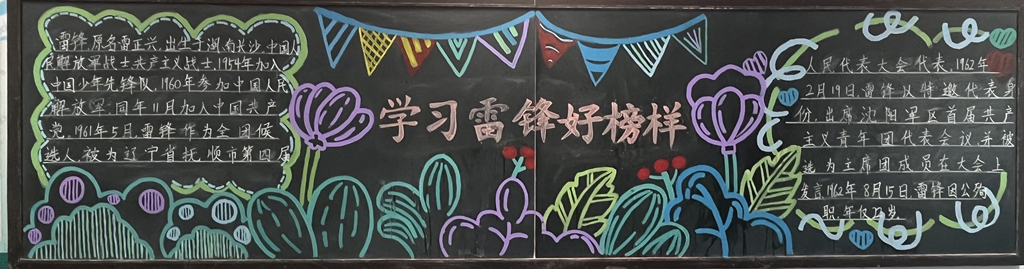 雷锋原名雷正兴,出生于湖南长沙,中国人
民解放军战士共产主义战士,1954年加入
中国少年先锋队,1960年参加中国人民
解放军,同年11月加入中国共产
党,1961年5月,雷锋作为全团候
选人,被为辽宁省抚顺市第四届
学习雷锋好榜样
人民代表大会代表,1962年
2月19日,雷锋以特邀代表身
份,出席沈阳军区首届共产
主义青年团代表会议并被
选为主席团成员在大会上
发言1962年8月15日,雷锋因公殉
职,年仅22岁